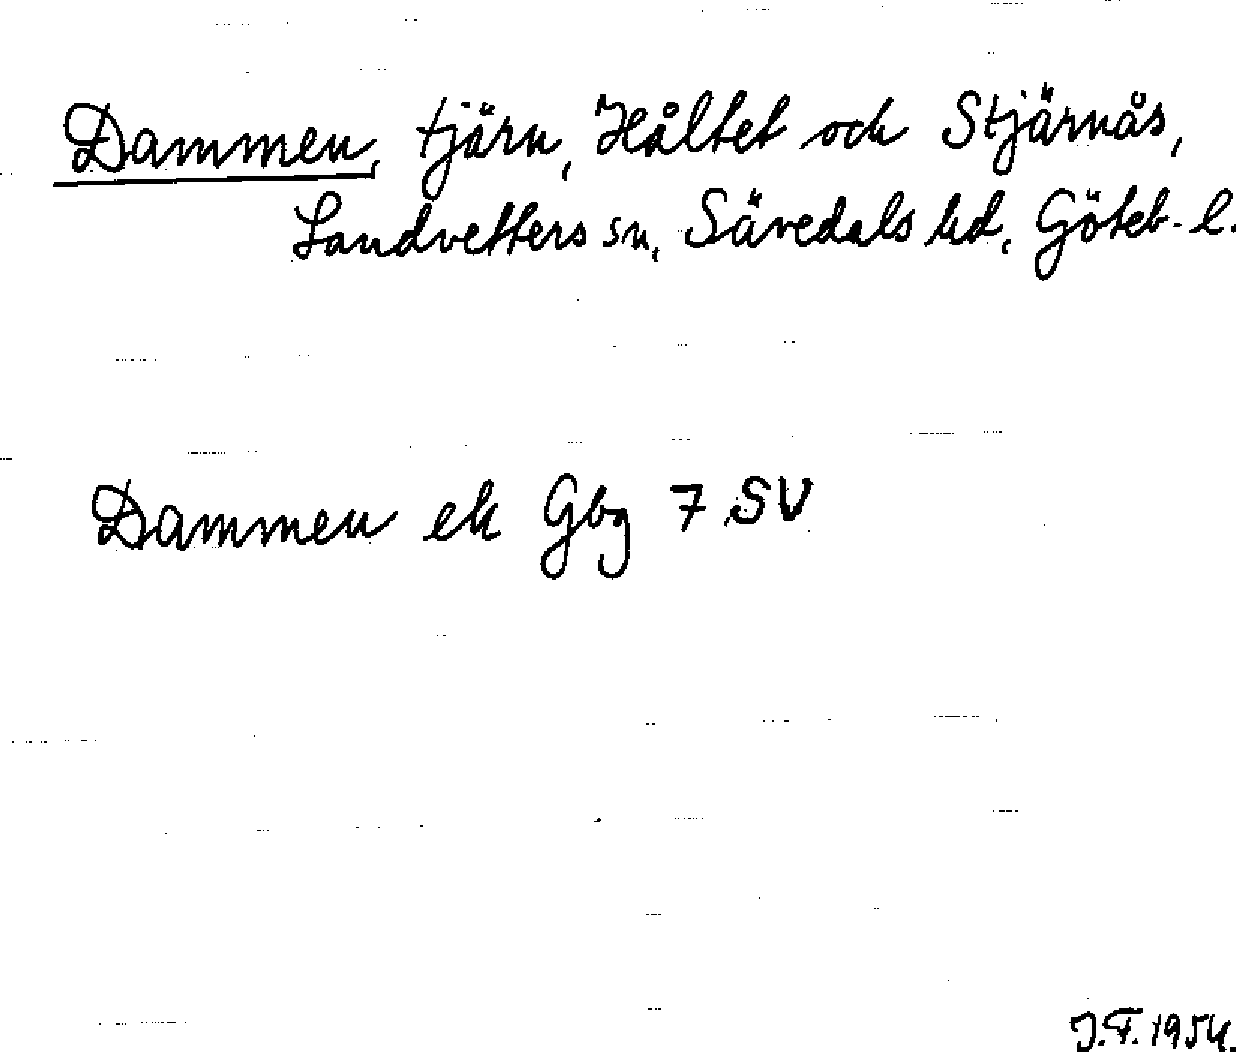 Dammen, tjärn, Håltet och Stjärnås,
Landvetters sn, Sävedals hd, Göteb. l.
Dammen ek Gbg 7 SV
J.F. 1954.